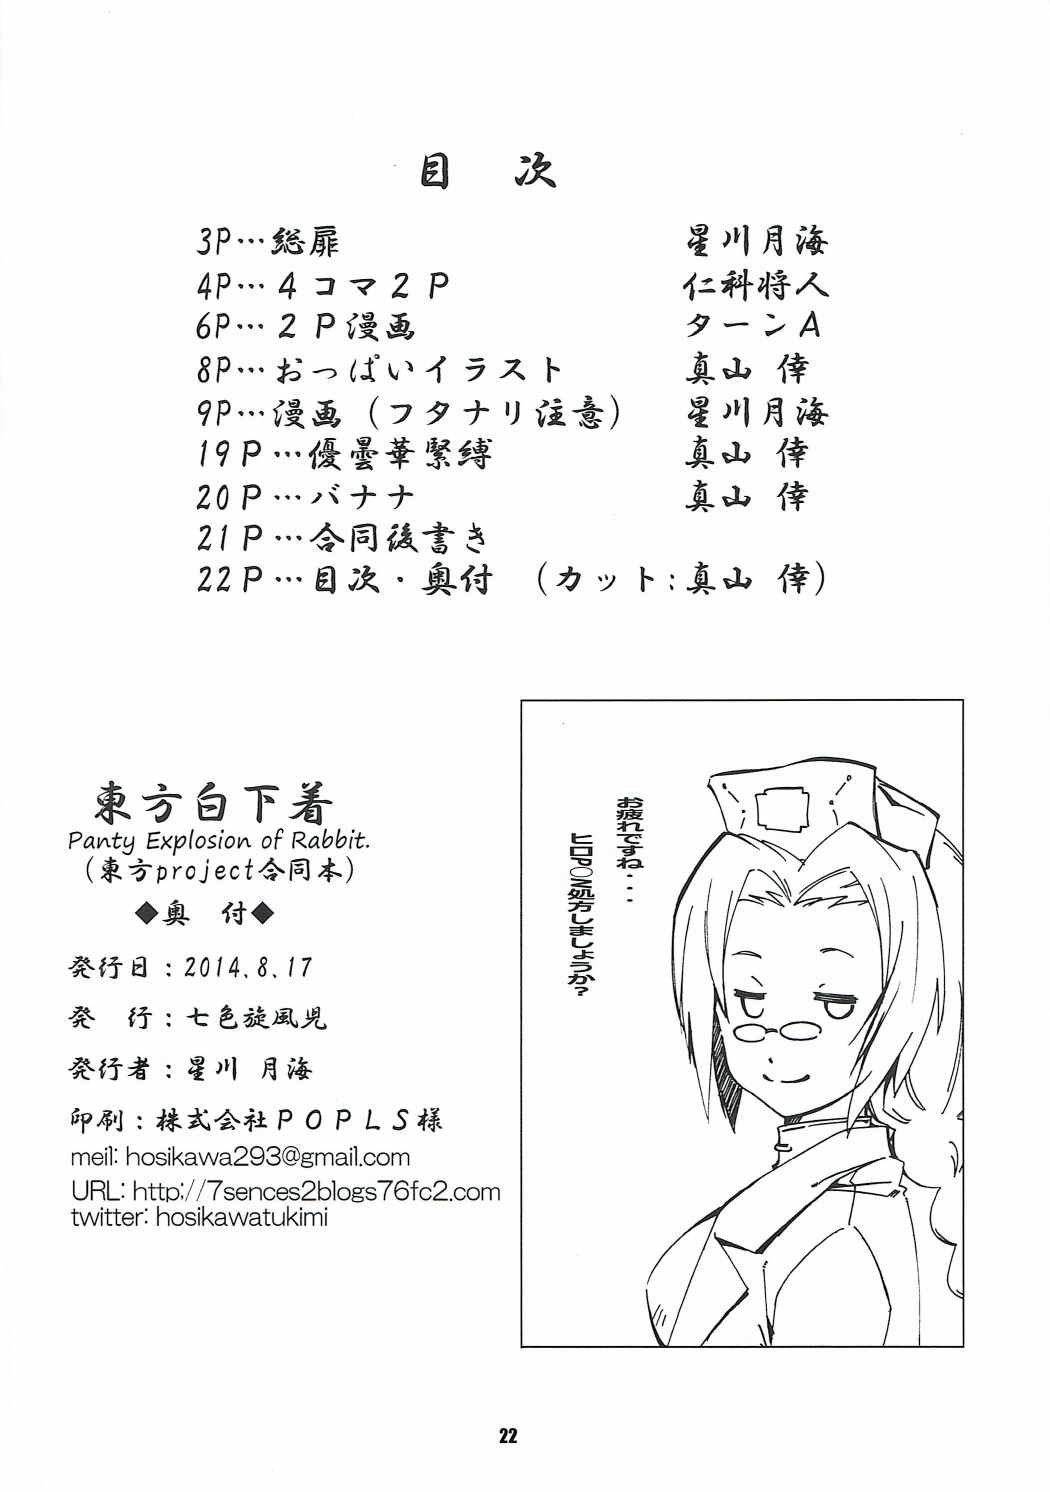 目 次
3P…総扉 星川月海
4P…４コマ２Ｐ 仁科将人
6P…２Ｐ漫画 ターンA
8P…おっぱいイラスト 真山 倖
9P…漫画（フタナリ注意） 星川月海
19P…優曇華緊縛 真山 倖
20P…バナナ 真山 倖
21P…合同後書き
22P…目次・奥付 （カット：真山 倖）
お疲れですね・・・
ヒロP○N処方しましょうか？
東方白下着
Panty Explosion of Rabbit.
（東方project合同本）
◆奥 付◆
発行日：2014.8.17
発 行：七色旋風児
発行者：星川 月海
印刷：株式会社ＰＯＰＬＳ様
meil: hosikawa293@gmail.com
URL: http://7sences2blogs76fc2.com
twitter: hosikawatukimi
22